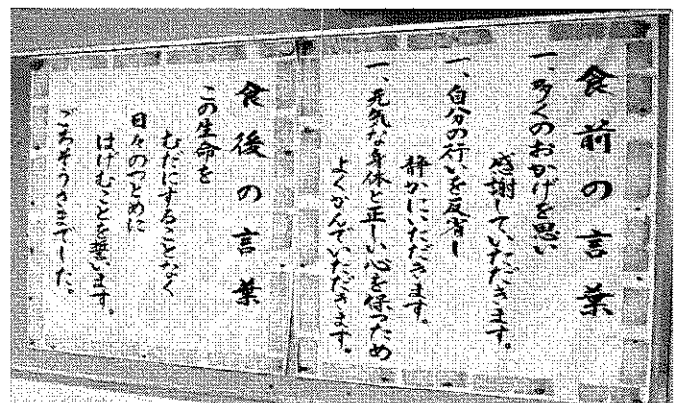 食前の言葉
一、多くのおかげを思い
感謝していただきます。
一、自分の行いを反省し
静かにいただきます。
一、元気な身体と正しい心を保つため
よくかんでいただきます。
食後の言葉
この生命を
むだにすることなく
日々のつとめに
はげむことを誓います。
ごちそうさまでした。